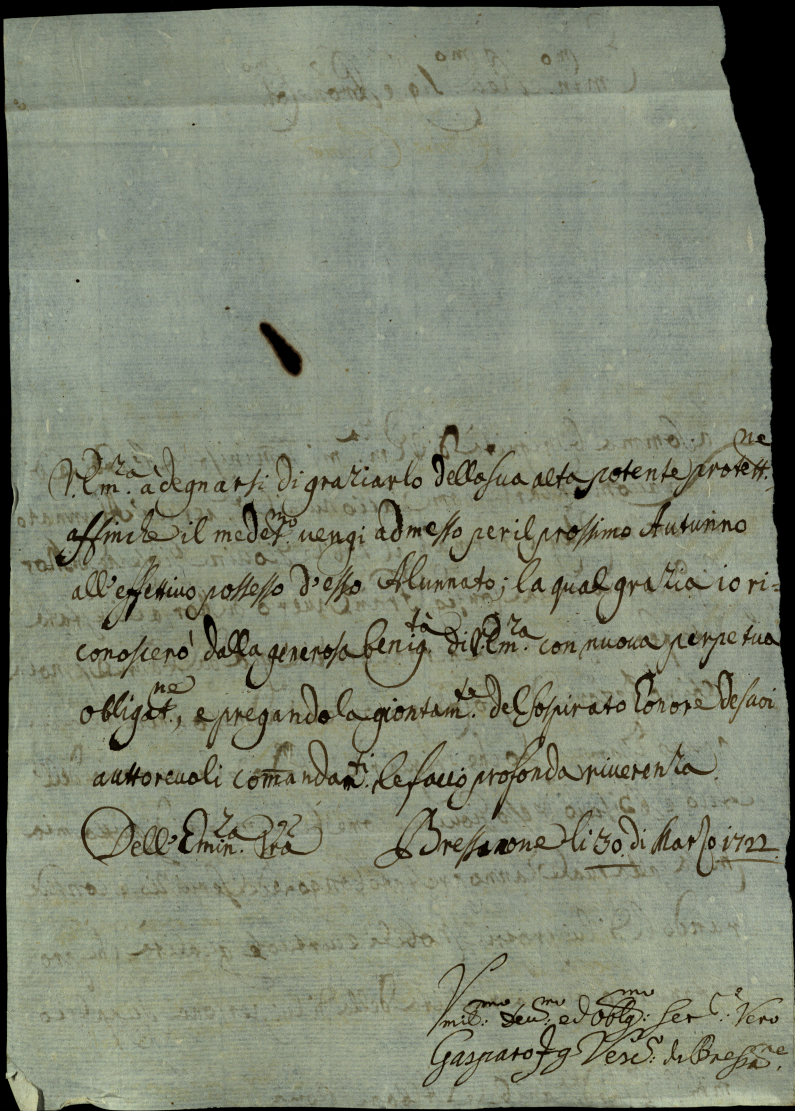 V. Em.za à degnarsi di graziarlo della sua alta potente protett.ne
affinche il medet.mo vengi admesso per il prossimo Autunno
all'effettivo possesso d'esso Alunnato; la qual grazia io ri=
conoscerò dalla generosa benig.tà di V. Em.za con nuova perpetua
obligat.ne, e pregandola giontam.te del sospirato honore de suoi
auttorevoli comandam.ti le facio profonda riverenza.
Dell'Emin.za Vra Bressanone li 30. di Marzo 1722.
Vmil.mo deu.mo ed oblg.mo Ser.e Vero
Gasparo Ig Vesc.o di Bressa.ne